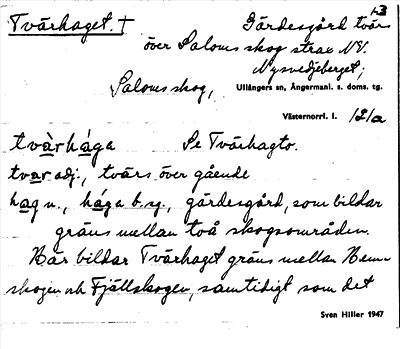 Tvärhaget. † Gärdesgård tvärs 1-3
över Saloms skog strax NV.
Nysvedjeberget;
Saloms skog, Ullångers sn, Ångermanl. s. doms. tg.
Västernorrl. l. 12/a
tvàrhága Se Tvärhagto.
tvar adj., tvärs över gående
hag n., hága b.sg., gärdesgård, som bildar
gräns mellan två skogsområden.
Här bildar Tvärhaget gräns mellan Hem-
skogen och Fjällskogen, samtidigt som det
Sven Hiller 1947